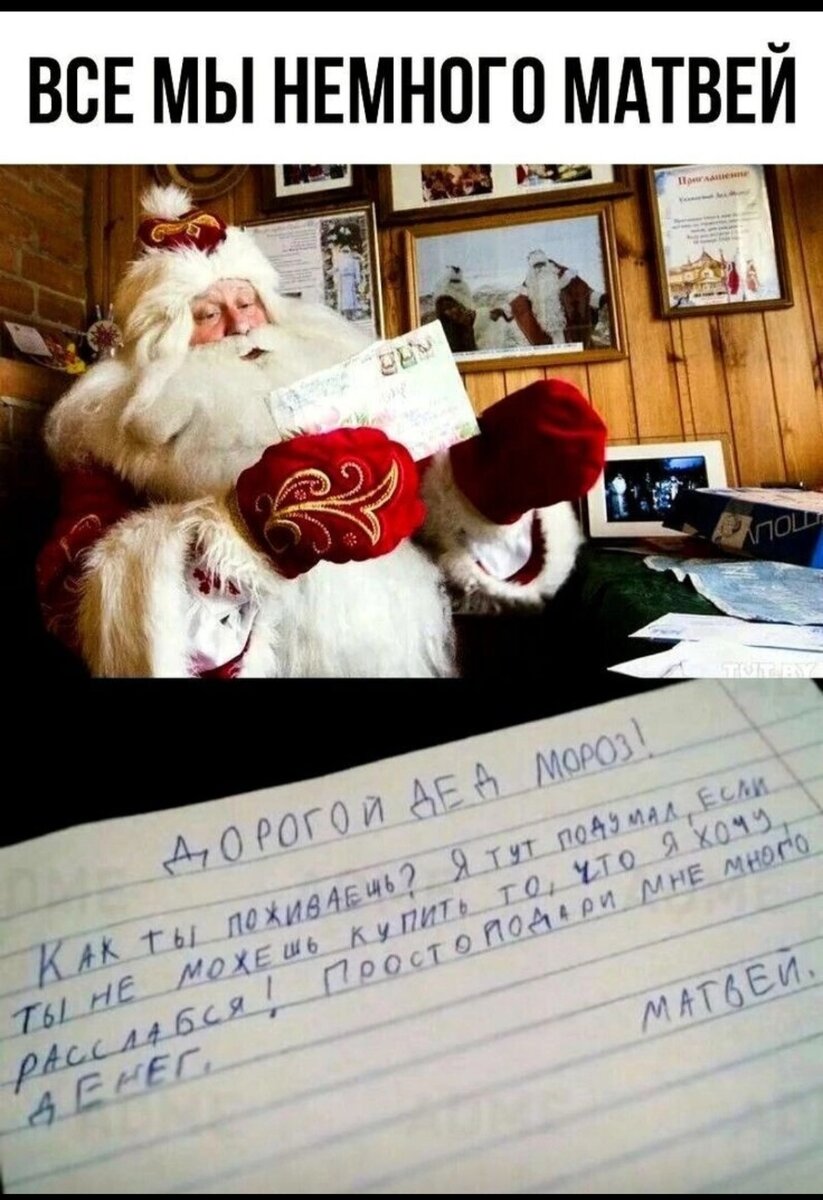 ВСЕ МЫ НЕМНОГО МАТВЕЙ
Приглашение
TUT.BY
ДОРОГОЙ ДЕД МОРОЗ!
КАК ТЫ ПОЖИВАЕШЬ? Я ТУТ ПОДУМАЛ, ЕСЛИ
ТЫ НЕ МОЖЕШЬ КУПИТЬ ТО, ЧТО Я ХОЧУ,
РАССЛАБСЯ! ПРОСТО ПОДАРИ МНЕ МНОГО
ДЕНЕГ.
МАТВЕЙ.